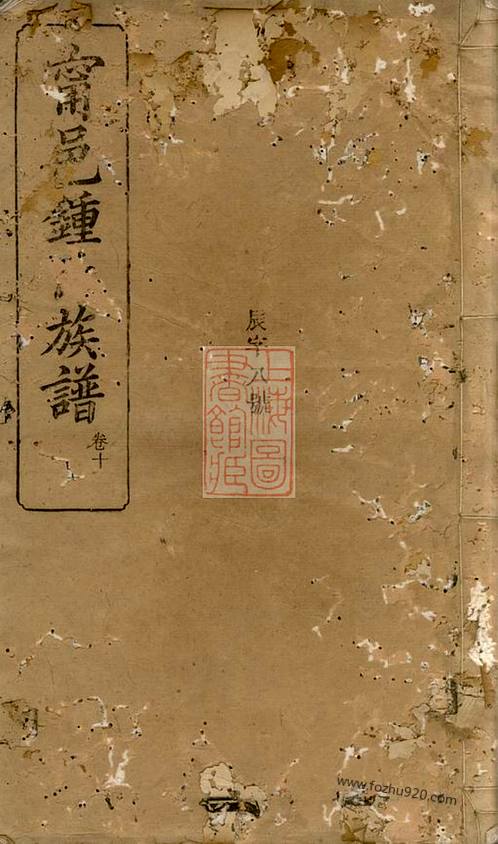 甯邑鍾
族譜
卷十
辰字八號
上海圖
書館藏
www.fozhu920.com